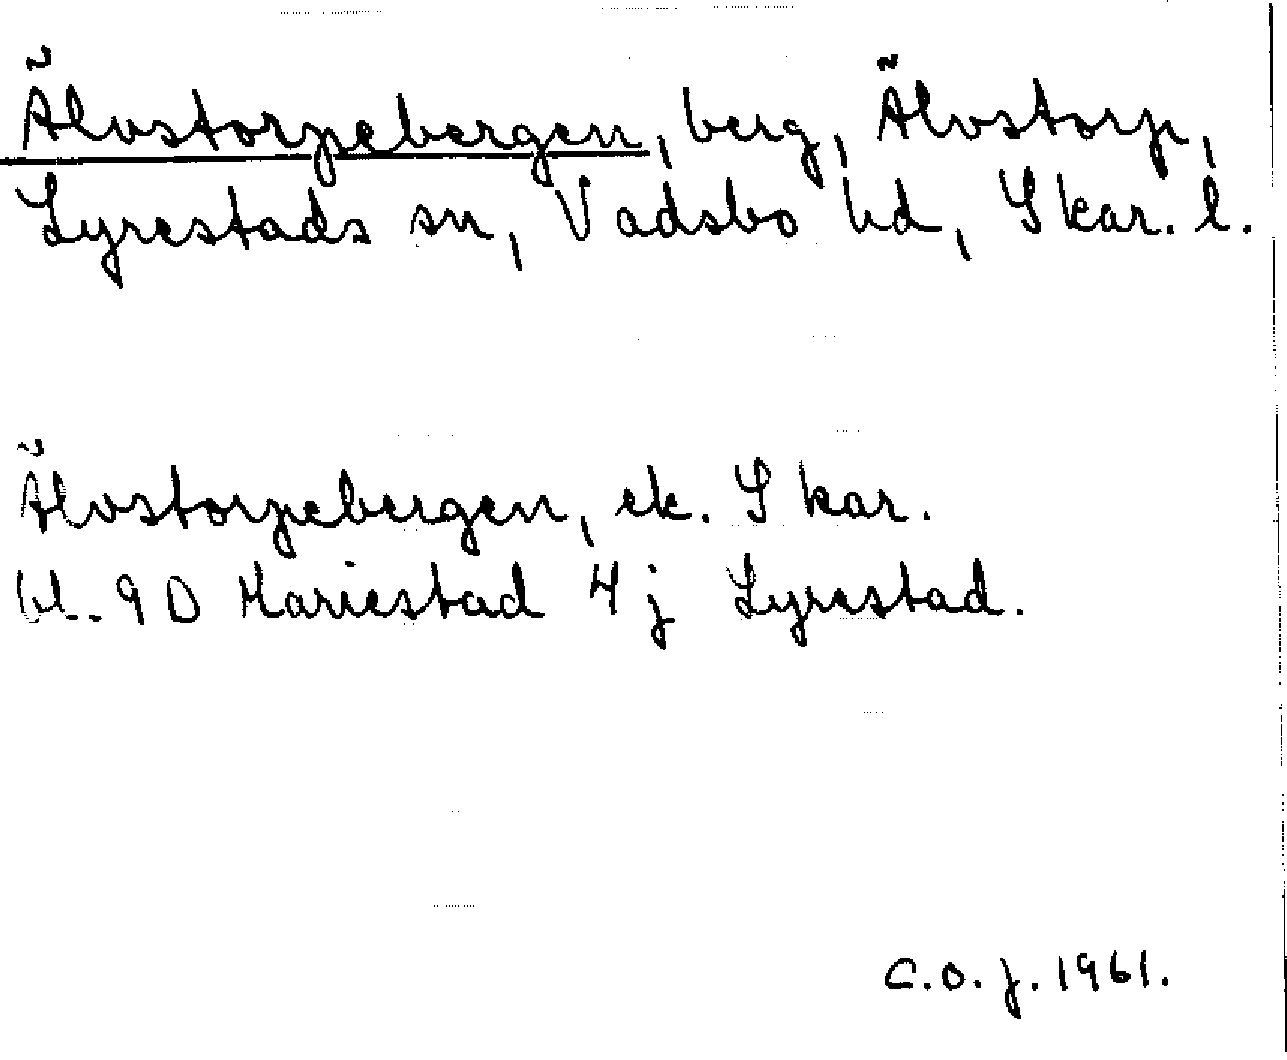 Älvstorpebergen, berg, Älvstorp,
Lyrestads sn, Vadsbo hd, Skar. l.
Älvstorpebergen, ek. Skar.
bl. 9 D Mariestad 4 j Lyrestad.
C.O.J. 1961.